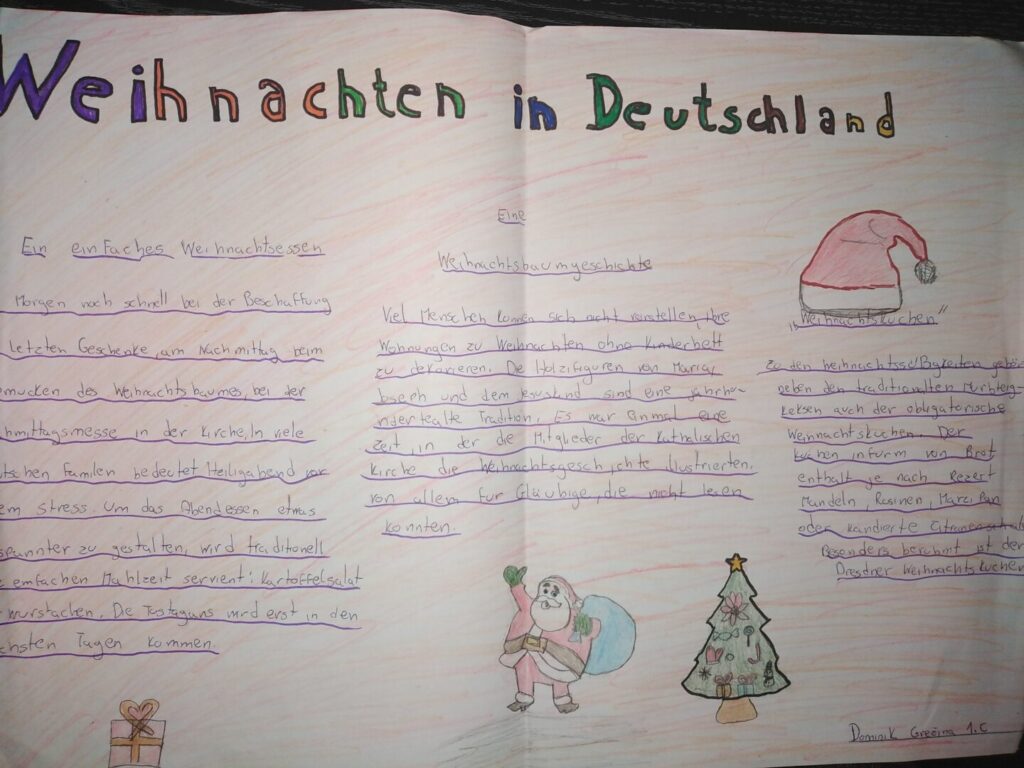 Weihnachten in Deutschland
Ein einfaches Weihnachtsessen
Morgen noch schnell bei der Beschaffung
letzten Geschenke, am Nachmittag beim
mucken des Weihnachtsbaumes, bei der
hmittagsmesse in der Kirche, In viele
tschen Familen bedeutet Heiligabend vor
em stress. Um das Abendessen etmas
spannter zu gestalten, wird traditionell
emfachen Mahlzeit serviert: Kartoffelsalat
wurstachen. De in den
chsten Tagen kommen.
Eine
Weihnachtsbaumgeschichte
Viel Menschen konnen sich nicht vorstellen, ihre
Wohnungen zu Weihnachten ohne
zu dekorieren. De Holzfiguren von Maria,
Joseph und dem sind eine jahrhu-
ndertealte Tradition. Es war einmal eine
zeit, in der die Mitglieder der Katholischen
Kirche die Weihnachtsgesch ichte ilustrierten,
von allem fur Gläubige, die nicht lesen
konnten.
"Weihnachtskuchen"
zu den weihnachtssüßigkeiten gehö
neben den traditionellen
keksen auch der obligatorische
Weihnachtskuchen. Der
kuchen inform von Brot
enthalt je nach Rezert
Mandeln, Rosinen, Marzipan
oder kandierte
Besonders beruhmt ist der
Dresdner Weihnachtskuchen
Dominik Grečina 1.C